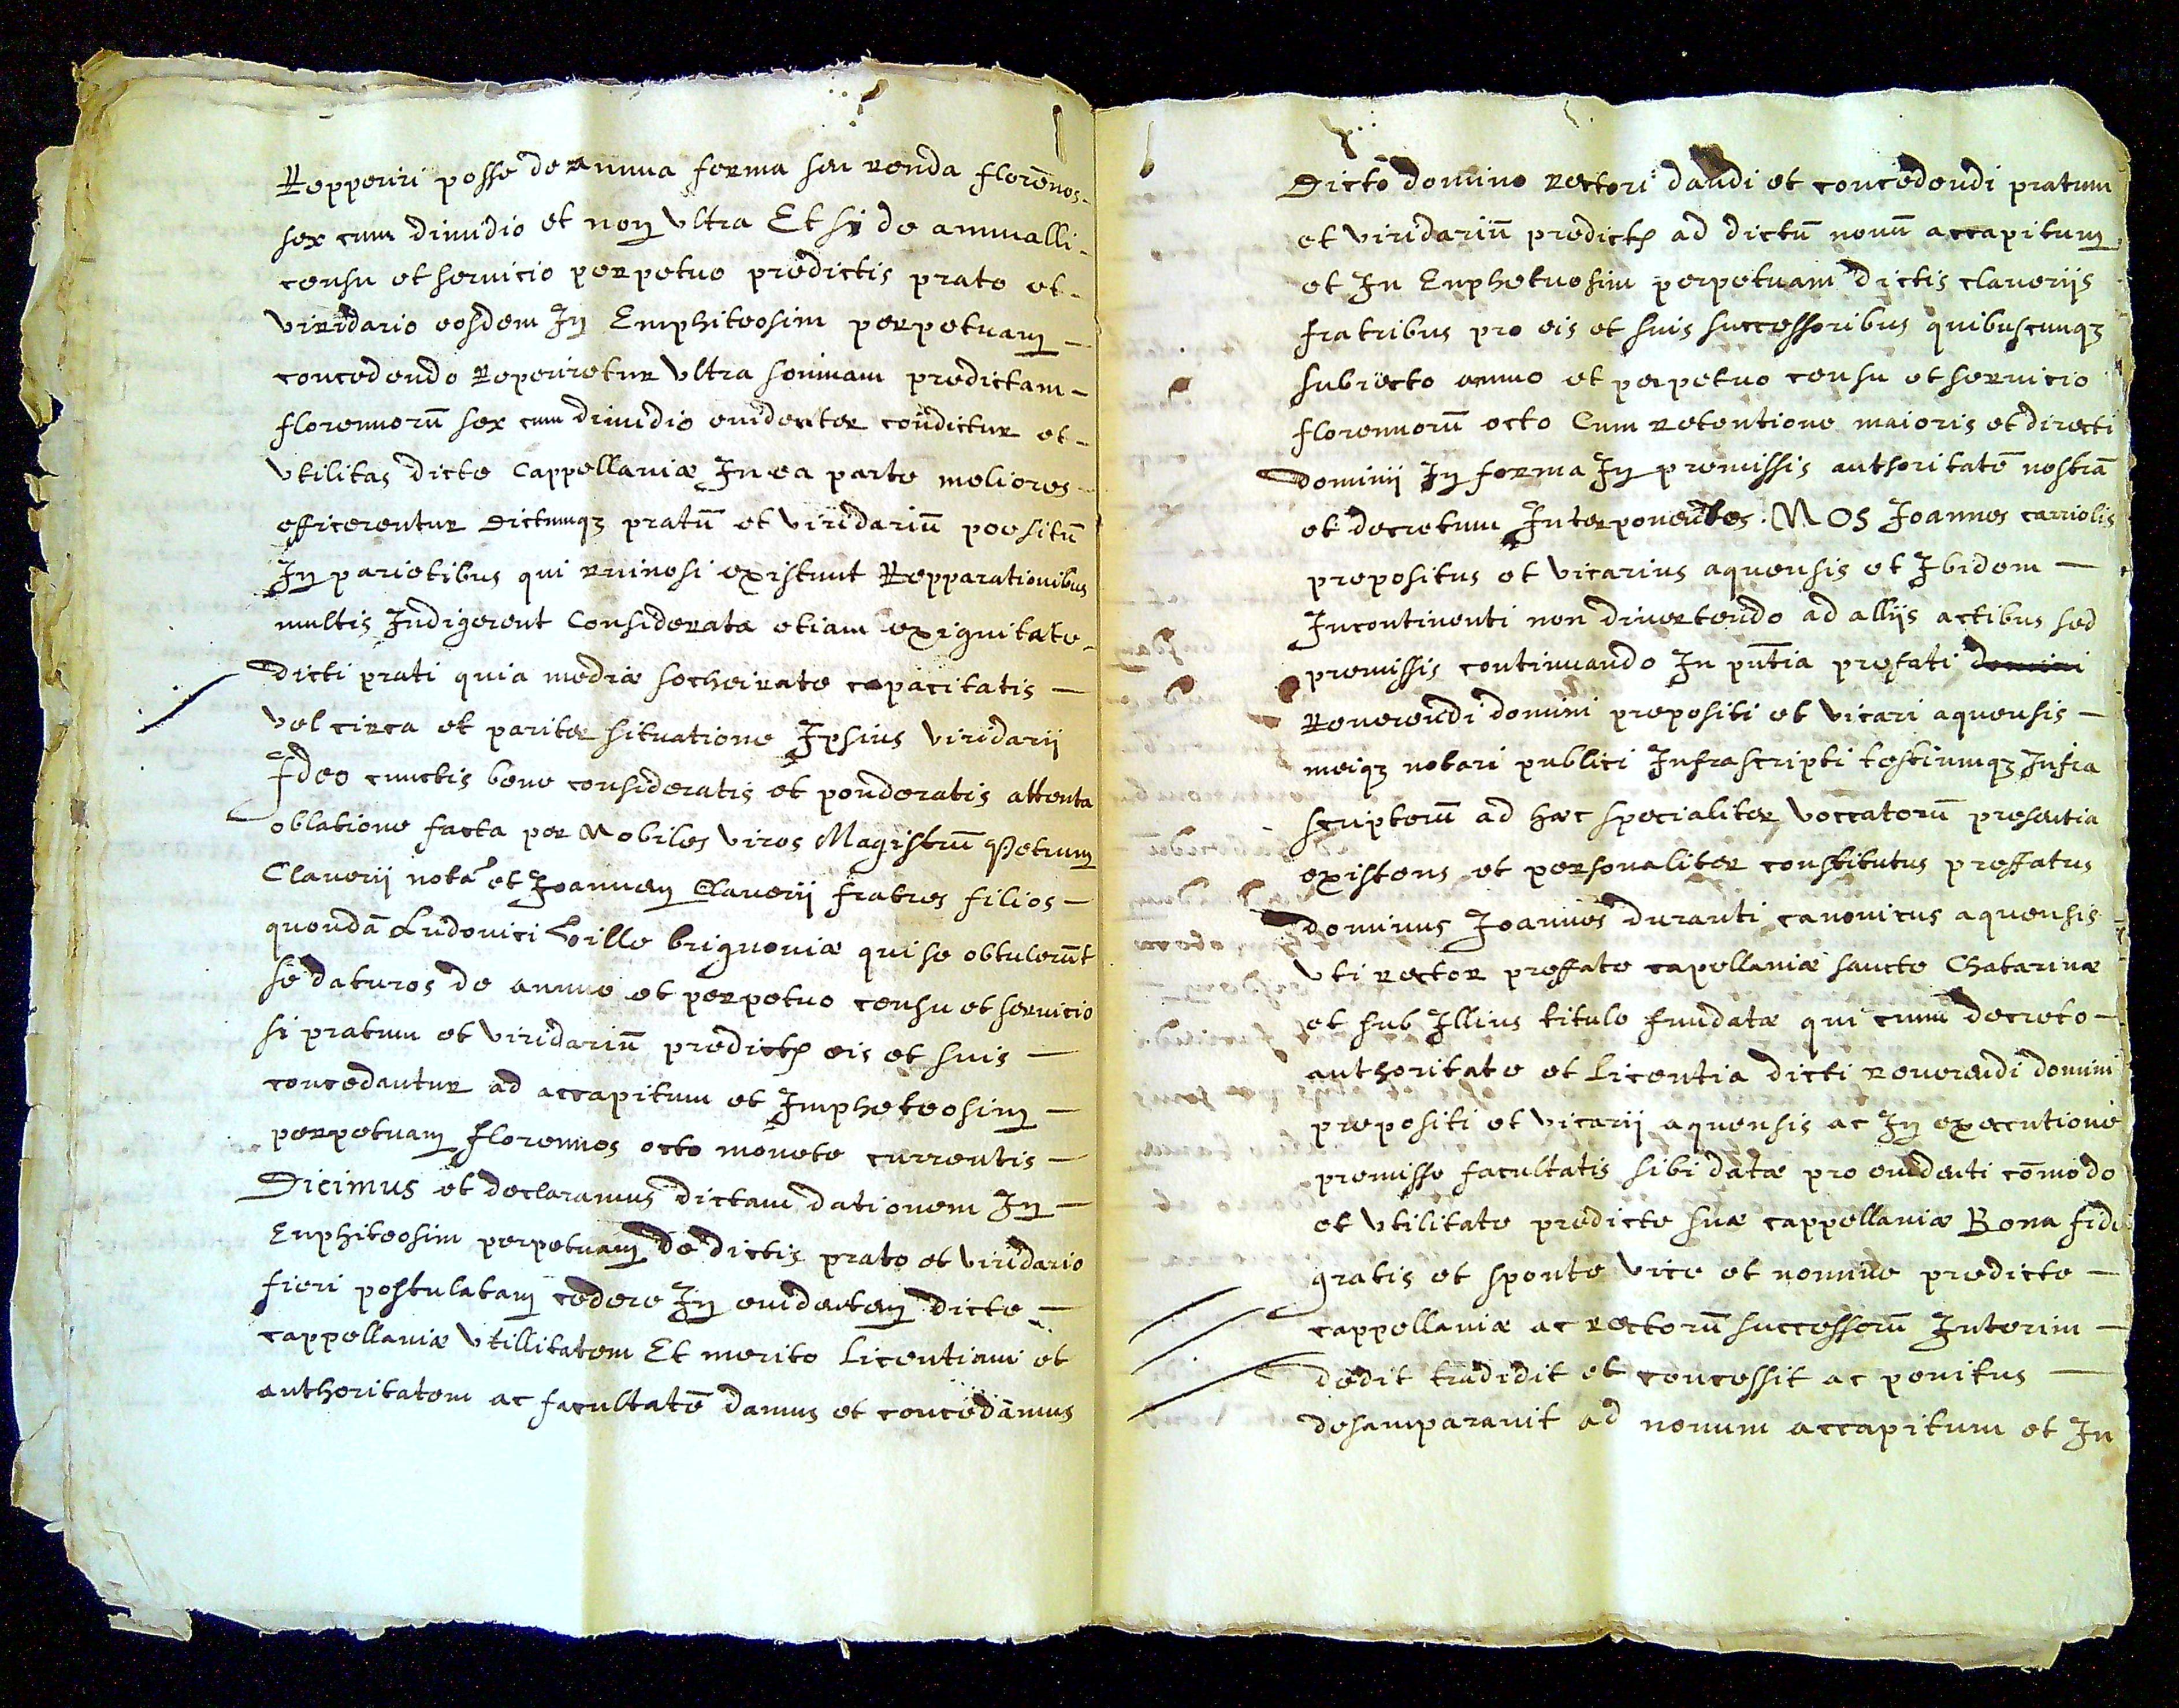 Repperiri posse de annua ferma seu renda florēnos
sex cum dimidio et non Vltra Et si de annualli
censu et seruicio perpetuo predictis prato et
viridario eosdem In Emphiteosim perpetuam
concedendo Reperiretur Vltra sommam predictam
florennorū sex cum dimidio euidenter conditur et
Vtilitas dicte Cappellaniæ In ea parte meliores
efficerentur dictumqȝ pratū et Viridariū poositū
In parietibus qui ruinosi existunt Repparationibus
multis Indigerent Considerata etiam exiguitate
dicti prati quia mediæ socheirate capacitatis
Vel circa et pariter situatione Ipsius Viridarii
Ideo cunctis bene consideratis et ponderatis attenta
oblatione facta per Nobiles Viros Magistrū Petrum
Clauerij notā et Joannem Clauerij fratres filios
quondā Ludouici Ville brignoniæ qui se obtulerūt
se daturos de annuo et perpetuo censu et seruicio
si pratum et Viridariū predict eis et suis
concedantur ad accapitum et Impheteosim
perpetuam florennos octo monete currentis
Dicimus et declaramus dictam dationem In
Enphiteosim perpetuam de dictis prato et Viridario
fieri postulatam cedere In euidentem dicte
cappellaniæ Vtillitatem Et merito Licentiam et
authoritatem ac facultatē damus et concedamus
Dicto domino rectori dandi et concedendi pratum
et Viridariū predict ad dictū nouū accapitum
et In Enphetuosim perpetuam dictis claueriis
fratribus pro eis et suis successoribus quibuscunqȝ
sub recto annuo et perpetuo censu et seruicio
florennorū octo Cum retentione maioris et directi
dominij In forma In premissis authoritatē nostrā
et decretum Interponentes. NOS Joannes carriolis
prepositus et Vicarius aquensis et Ibidem
Incontinenti non diuertendo ad allijs actibus sed
premissis continuando In pntīa prefati domini
Reuerendi domini prepositi et Vicari aquensis
meiqȝ notari publici Infrascripti testiumqȝ Infra
scriptorū ad hæc specialiter Voccatorū presentia
existens et personaliter constitutus preffatus
dominus Joannes duranti canonicus aquensis
Vti rector preffate capellaniæ sancte Chatarinæ
et sub Illius titulo fundatæ qui cum decreto
authoritate et Licentia dicti reuerendi domini
prepositi et Vicarij aquensis ac In executione
premisse facultatis sibi datæ pro euidenti cōmodo
et Vtilitate predicte suæ cappellaniæ Bona fide
gratis et sponte Vice et nomine predicte
cappellaniæ ac rectorū successorū Interim
dedit tradidit et concessit ac penitus
desamparauit ad nouum accapitum et In